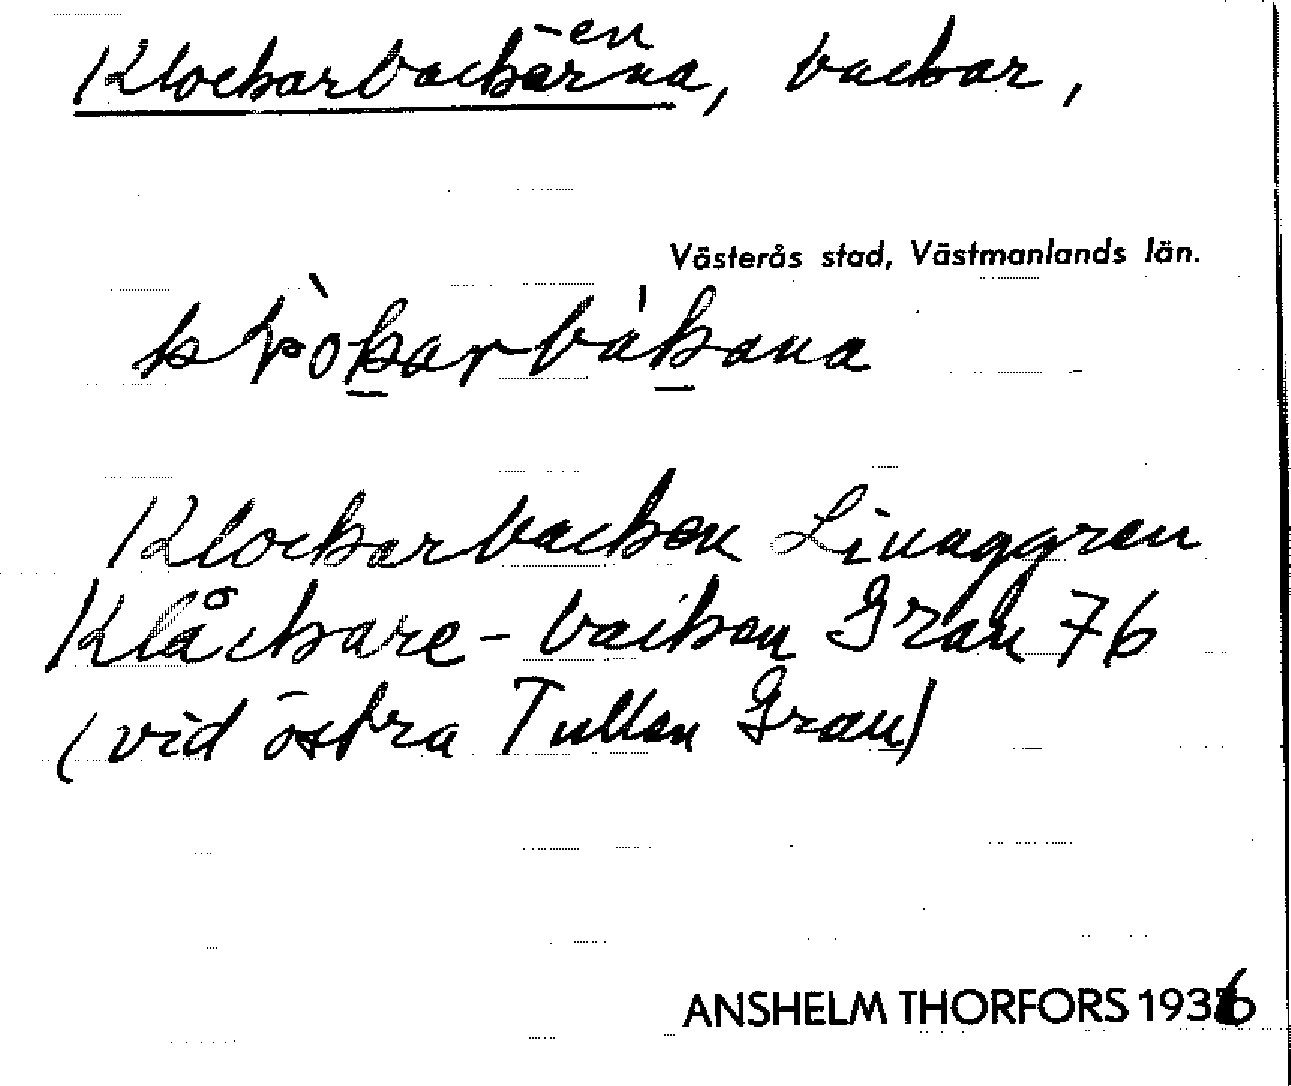 -en
Klockarbackarna, backar,
Västerås stad, Västmanlands län.
Klockarbacken Linnaggren
Klåckare-backen Grau 76
(vid östra Tullen Grau)
ANSHELM THORFORS 1936